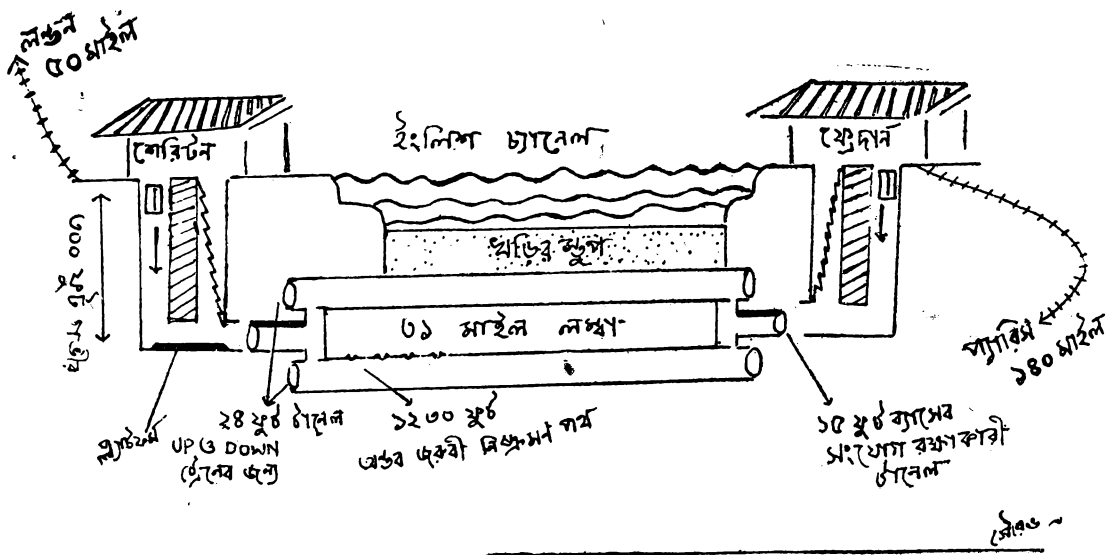 লন্ডন
৫০ মাইল
ইংলিশ চ্যানেল
শেরিটন
ফ্রেদান
৩০০ ফুট গভীর
খড়ির স্তুপ
৩১ মাইল লম্বা
প্যারিস
১৪০ মাইল
প্ল্যাটফর্ম
২৪ ফুট টানেল
UP ও DOWN
ট্রেনের জন্য
১২৩০ ফুট
অন্তর জরুরী নিষ্ক্রমন পথ
১৫ ফুট ব্যাসের
সংযোগ রক্ষাকারী
টানেল